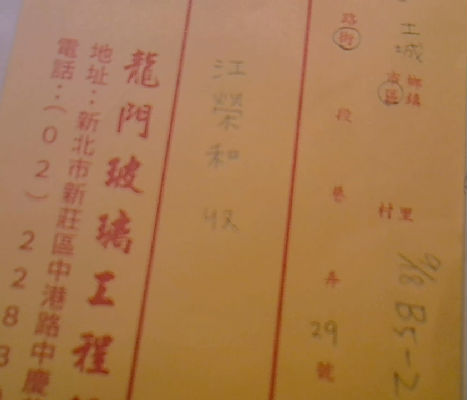 土城
鄉鎮
市區
村里
9/18 B5-2
路街 段 巷 弄 29 號
江榮和 收
龍門玻璃工程
地址：新北市新莊區中港路中慶
電話：(02)228